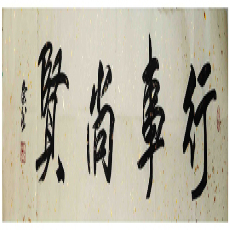 行事尚賢